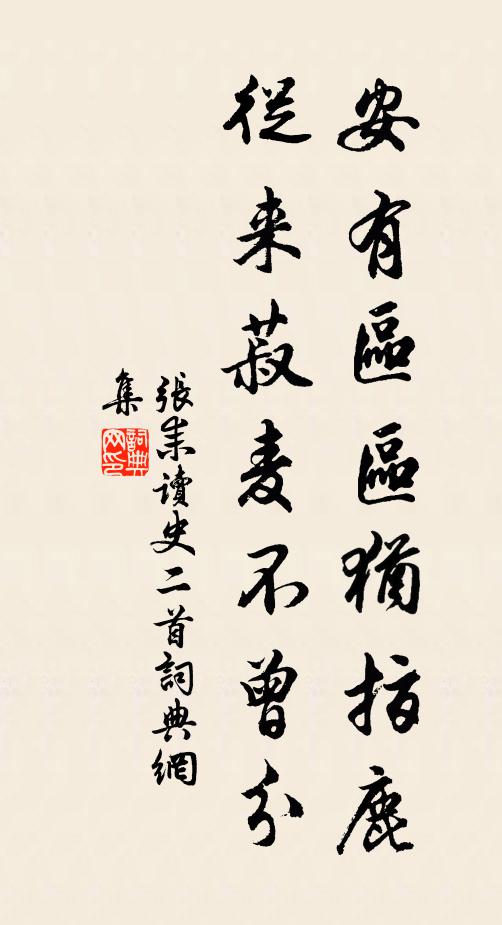 安有區區猶指鹿
從来菽麦不曾分
張耒讀史二首詞典網
集
詞典
网印